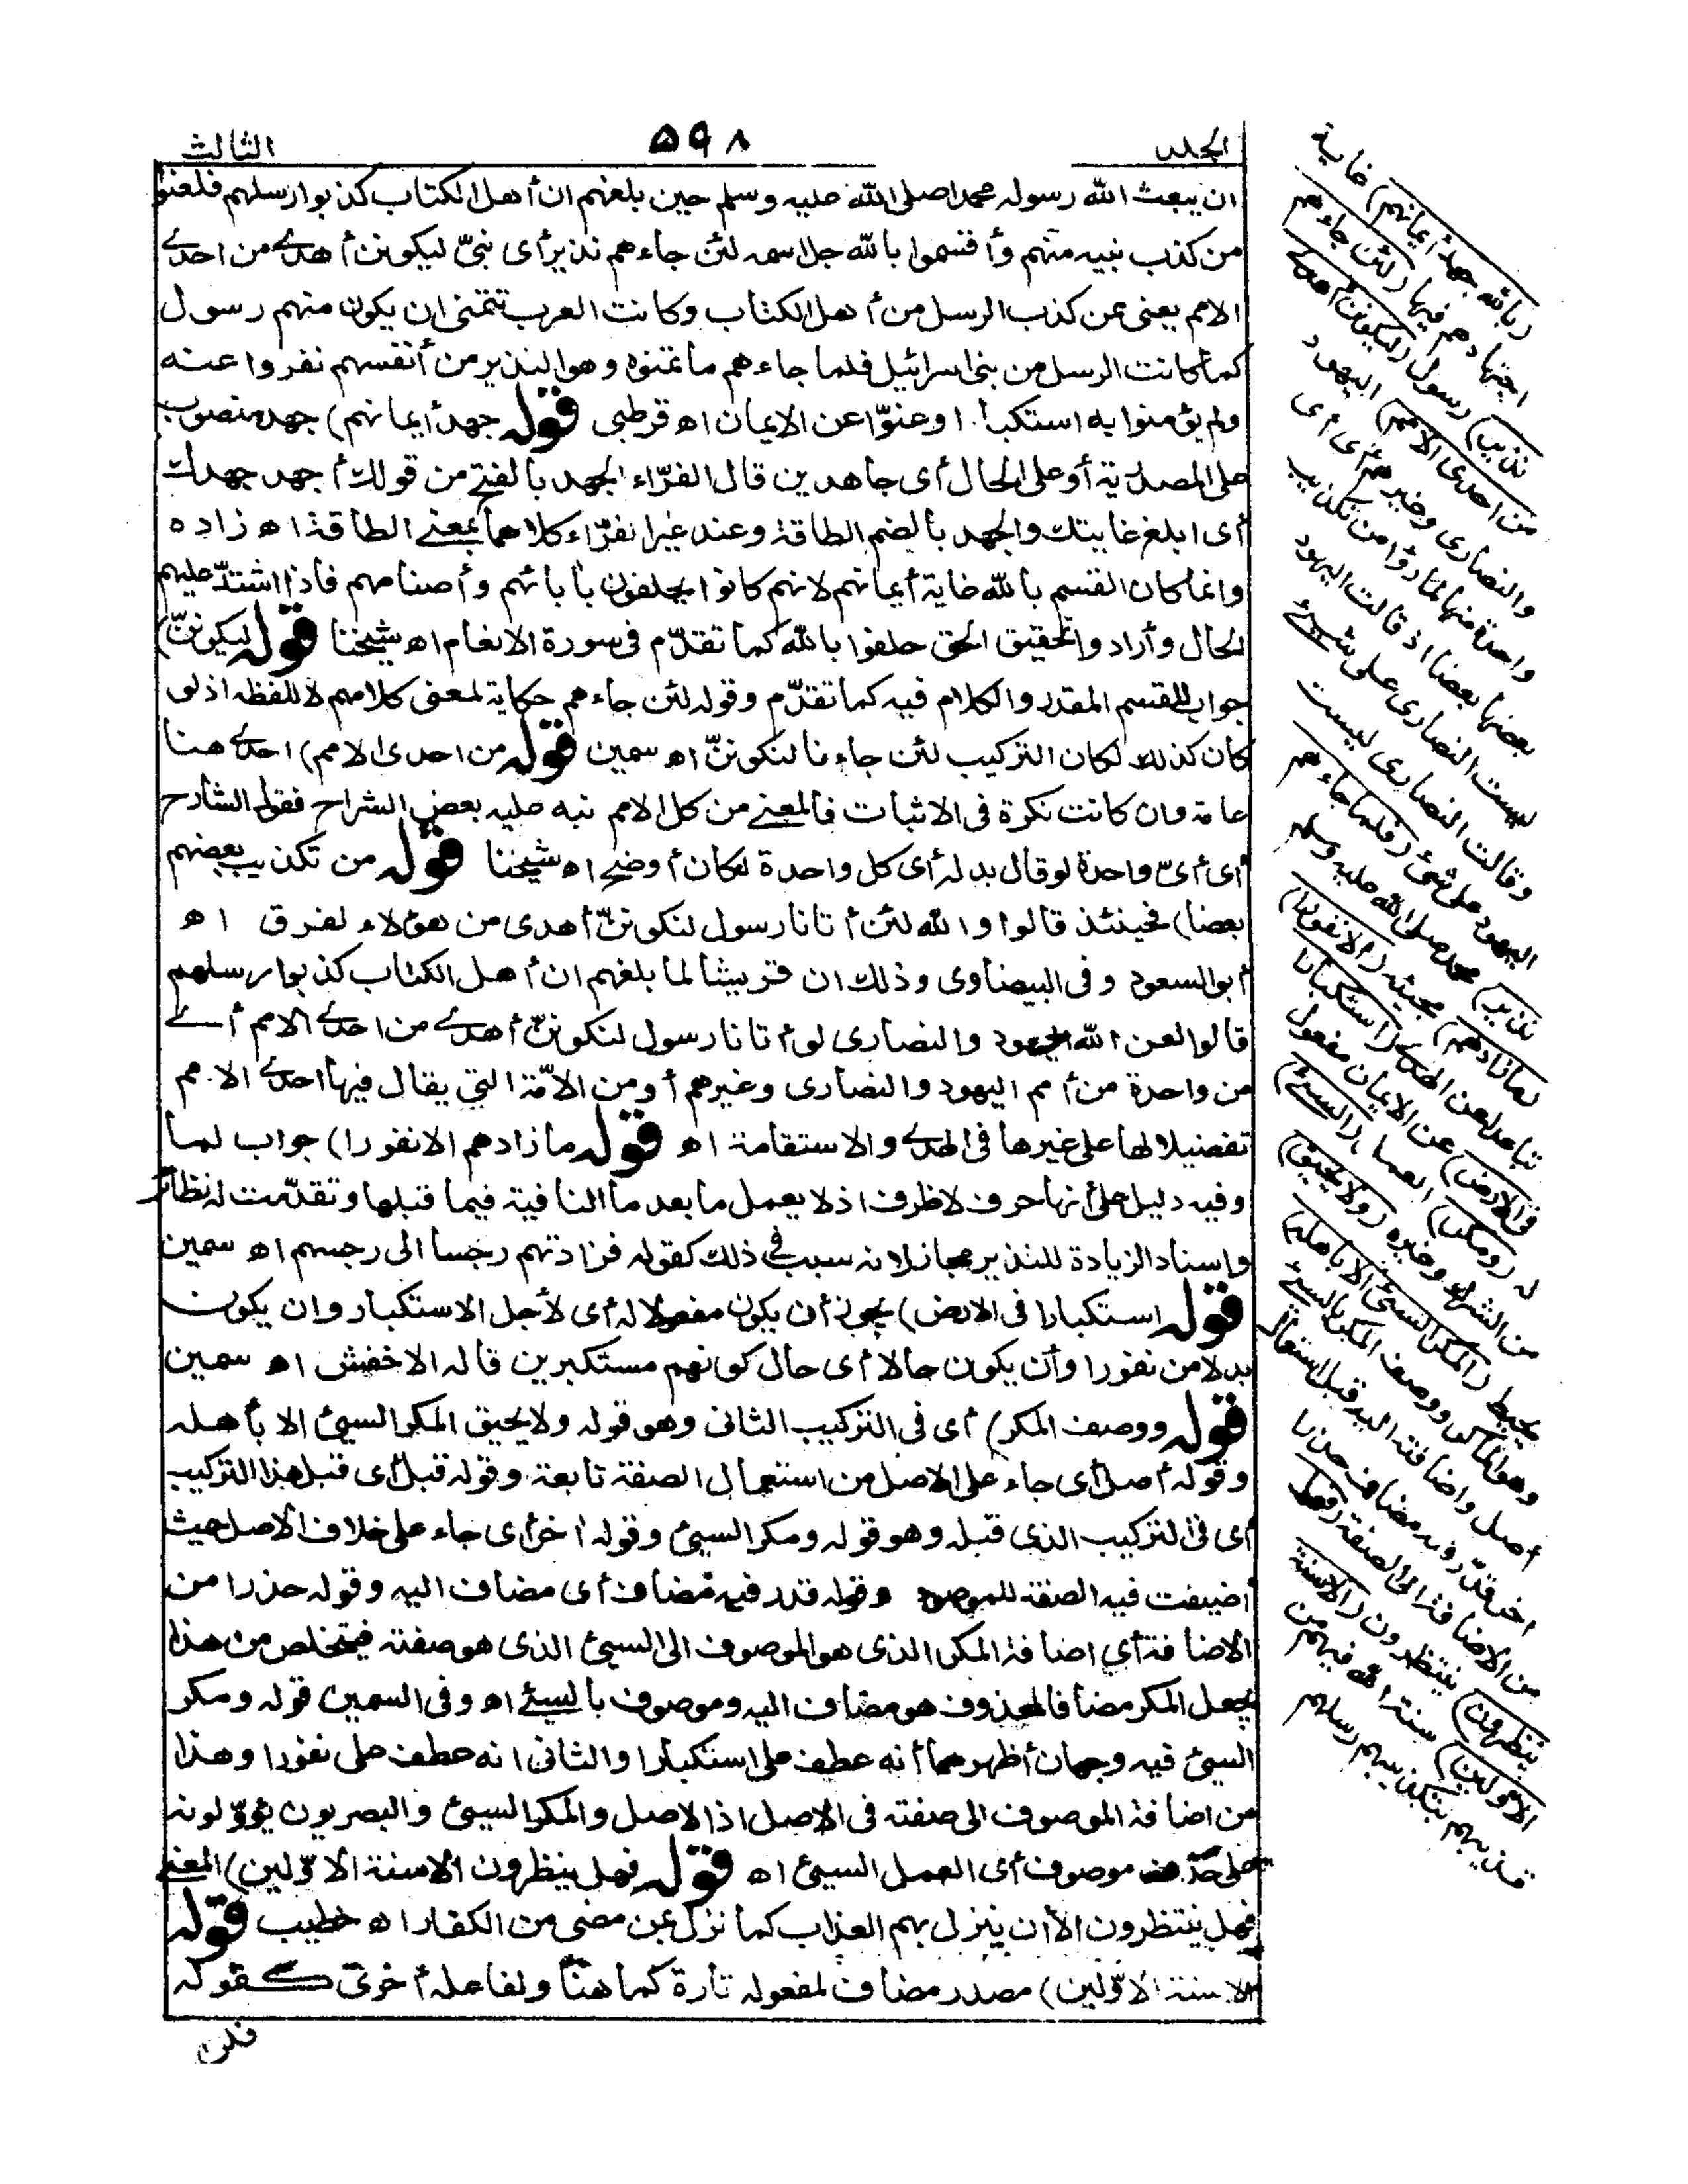 الجلد
٥٩٨
الثالث
ان يبعث الله رسوله محمدا صلى الله عليه وسلم حين بلغهم ان أهل الكتاب كذبوا رسلهم فلعنوا
من كذب نبيه منهم وأقسموا بالله جل اسمه لئن جاءهم نذير أى نبىّ ليكونن أهدى من احدى
الامم يعنى ممن كذب الرسل من أهل الكتاب وكانت العرب تتمنى ان يكون منهم رسول
كما كانت الرسل من بنى اسرائيل فلما جاءهم ما تمنوه وهو النذير من أنفسهم نفروا عنه
ولم يؤمنوا به استكبارا وعتوّا عن الايمان اه قرطبى قوله جهد أيمانهم) جهد منصوب
على المصدرية أو على الحال أى جاهدين قال الفرّاء الجهد بالفتح من قولك أجهد جهدك
أى ابلغ غايتك والجهد بالضم الطاقة وعند غير الفرّاء كلاهما بمعنى الطاقة اه زاده
وانما كان القسم بالله غاية أيمانهم لانهم كانوا يحلفون بآبائهم وأصنامهم فاذا اشتدّ عليهم
الحال وأرادوا تحقيق الحق حلفوا بالله كما تقدّم فى سورة الانعام اه شيخنا قوله ليكوننّ)
جواب للقسم المقدر والكلام فيه كما تقدّم وقوله لئن جاءهم حكاية لمعنى كلامهم لا للفظه اذ لو
كان كذلك لكان التركيب لئن جاءنا لنكوننّ اه سمين قوله من احدى الامم) احدى هنا
عامة وان كانت نكرة فى الاثبات فالمعنى من كل الامم نبه عليه بعض الشراح فقول الشارح
أى أىّ واحدة لو قال بدله أى كل واحدة لكان أوضح اه شيخنا قوله من تكذيب بعضهم
بعضا) فحينئذ قالوا والله لئن أتانا رسول لنكوننّ أهدى من هؤلاء لفرق اه
أبو السعود وفى البيضاوى وذلك ان قريشا لما بلغهم ان أهل الكتاب كذبوا رسلهم
قالوا لعن الله اليهود والنصارى لو أتانا رسول لنكوننّ أهدى من احدى الامم أى
من واحدة من أمم اليهود والنصارى وغيرهم أو من الامّة التى يقال فيها احدى الامم
تفضيلا لها على غيرها فى الهدى والاستقامة اه قوله ما زادهم الا نفورا) جواب لما
وفيه دليل على أنها حرف لا ظرف اذ لا يعمل ما بعد ما النافية فيما قبلها وتقدّمت له نظائر
واسناد الزيادة للنذير مجاز لانه سبب فى ذلك كقوله فزادتهم رجسا الى رجسهم اه سمين
قوله استكبارا فى الارض) يجوز أن يكون مفعولا له أى لأجل الاستكبار وان يكون
بدلا من نفورا وأن يكون حالا أى حال كونهم مستكبرين قاله الاخفش اه سمين
قوله ووصف المكر) أى فى التركيب الثانى وهو قوله ولا يحيق المكر السيئ الا بأهله
وقوله أصل أى جاء على الاصل من استعمال الصفة تابعة وقوله قبل أى قبل هذا التركيب
أى فى التركيب الذى قبله وهو قوله ومكر السيئ وقوله آخر أى جاء على خلاف الاصل حيث
أضيفت فيه الصفة للموصوف وقوله قدر فيه مضاف أى مضاف اليه وقوله حذرا من
الاضافة أى اضافة المكر الذى هو الموصوف الى السيئ الذى هو صفته فيتخلص من هذا
بجعل المكر مضافا لمحذوف هو مضاف اليه وموصوف بالسيئ اه وفى السمين قوله ومكر
السيئ فيه وجهان أظهرهما أنه عطف على استكبارا والثانى انه عطف على نفورا وهذا
من اضافة الموصوف الى صفته فى الاصل اذ الاصل والمكر السيئ والبصريون يؤوّلونه
على حذف موصوف أى العمل السيئ اه قوله فهل ينظرون الا سنة الاوّلين) المعنى
فهل ينتظرون الا أن ينزل بهم العذاب كما نزل بمن مضى من الكفار اه خطيب قوله
الا سنة الاوّلين) مصدر مضاف لمفعوله تارة كما هنا ولفاعله أخرى كقوله
فلن
(بالله جهد أيمانهم) غاية
اجتهادهم فيها (لئن جاءهم
نذير) رسول (ليكونن أهدى
من احدى الامم) اليهود
والنصارى وغيرهم أى أى
واحدة منها لما رأوا من تكذيب
بعضها بعضا اذ قالت اليهود
ليست النصارى على شىء
وقالت النصارى ليست
اليهود على شىء (فلما جاءهم
نذير) محمد صلى الله عليه وسلم
(ما زادهم) مجيئه (الا نفورا)
تباعدا عن الهدى (استكبارا
فى الارض) عن الايمان مفعول
له (ومكر) العمل (السيئ)
من الشرك وغيره (ولا يحيق)
يحيط (المكر السيئ الا بأهله)
وهو الماكر ووصف المكر بالسيئ
أصل واضافته اليه قبل استعمال
آخر قدّر فيه مضاف حذرا
من الاضافة الى الصفة (فهل
ينظرون) ينتظرون (الا سنة
الاوّلين) سنة الله فيهم من
تعذيبهم بتكذيبهم رسلهم